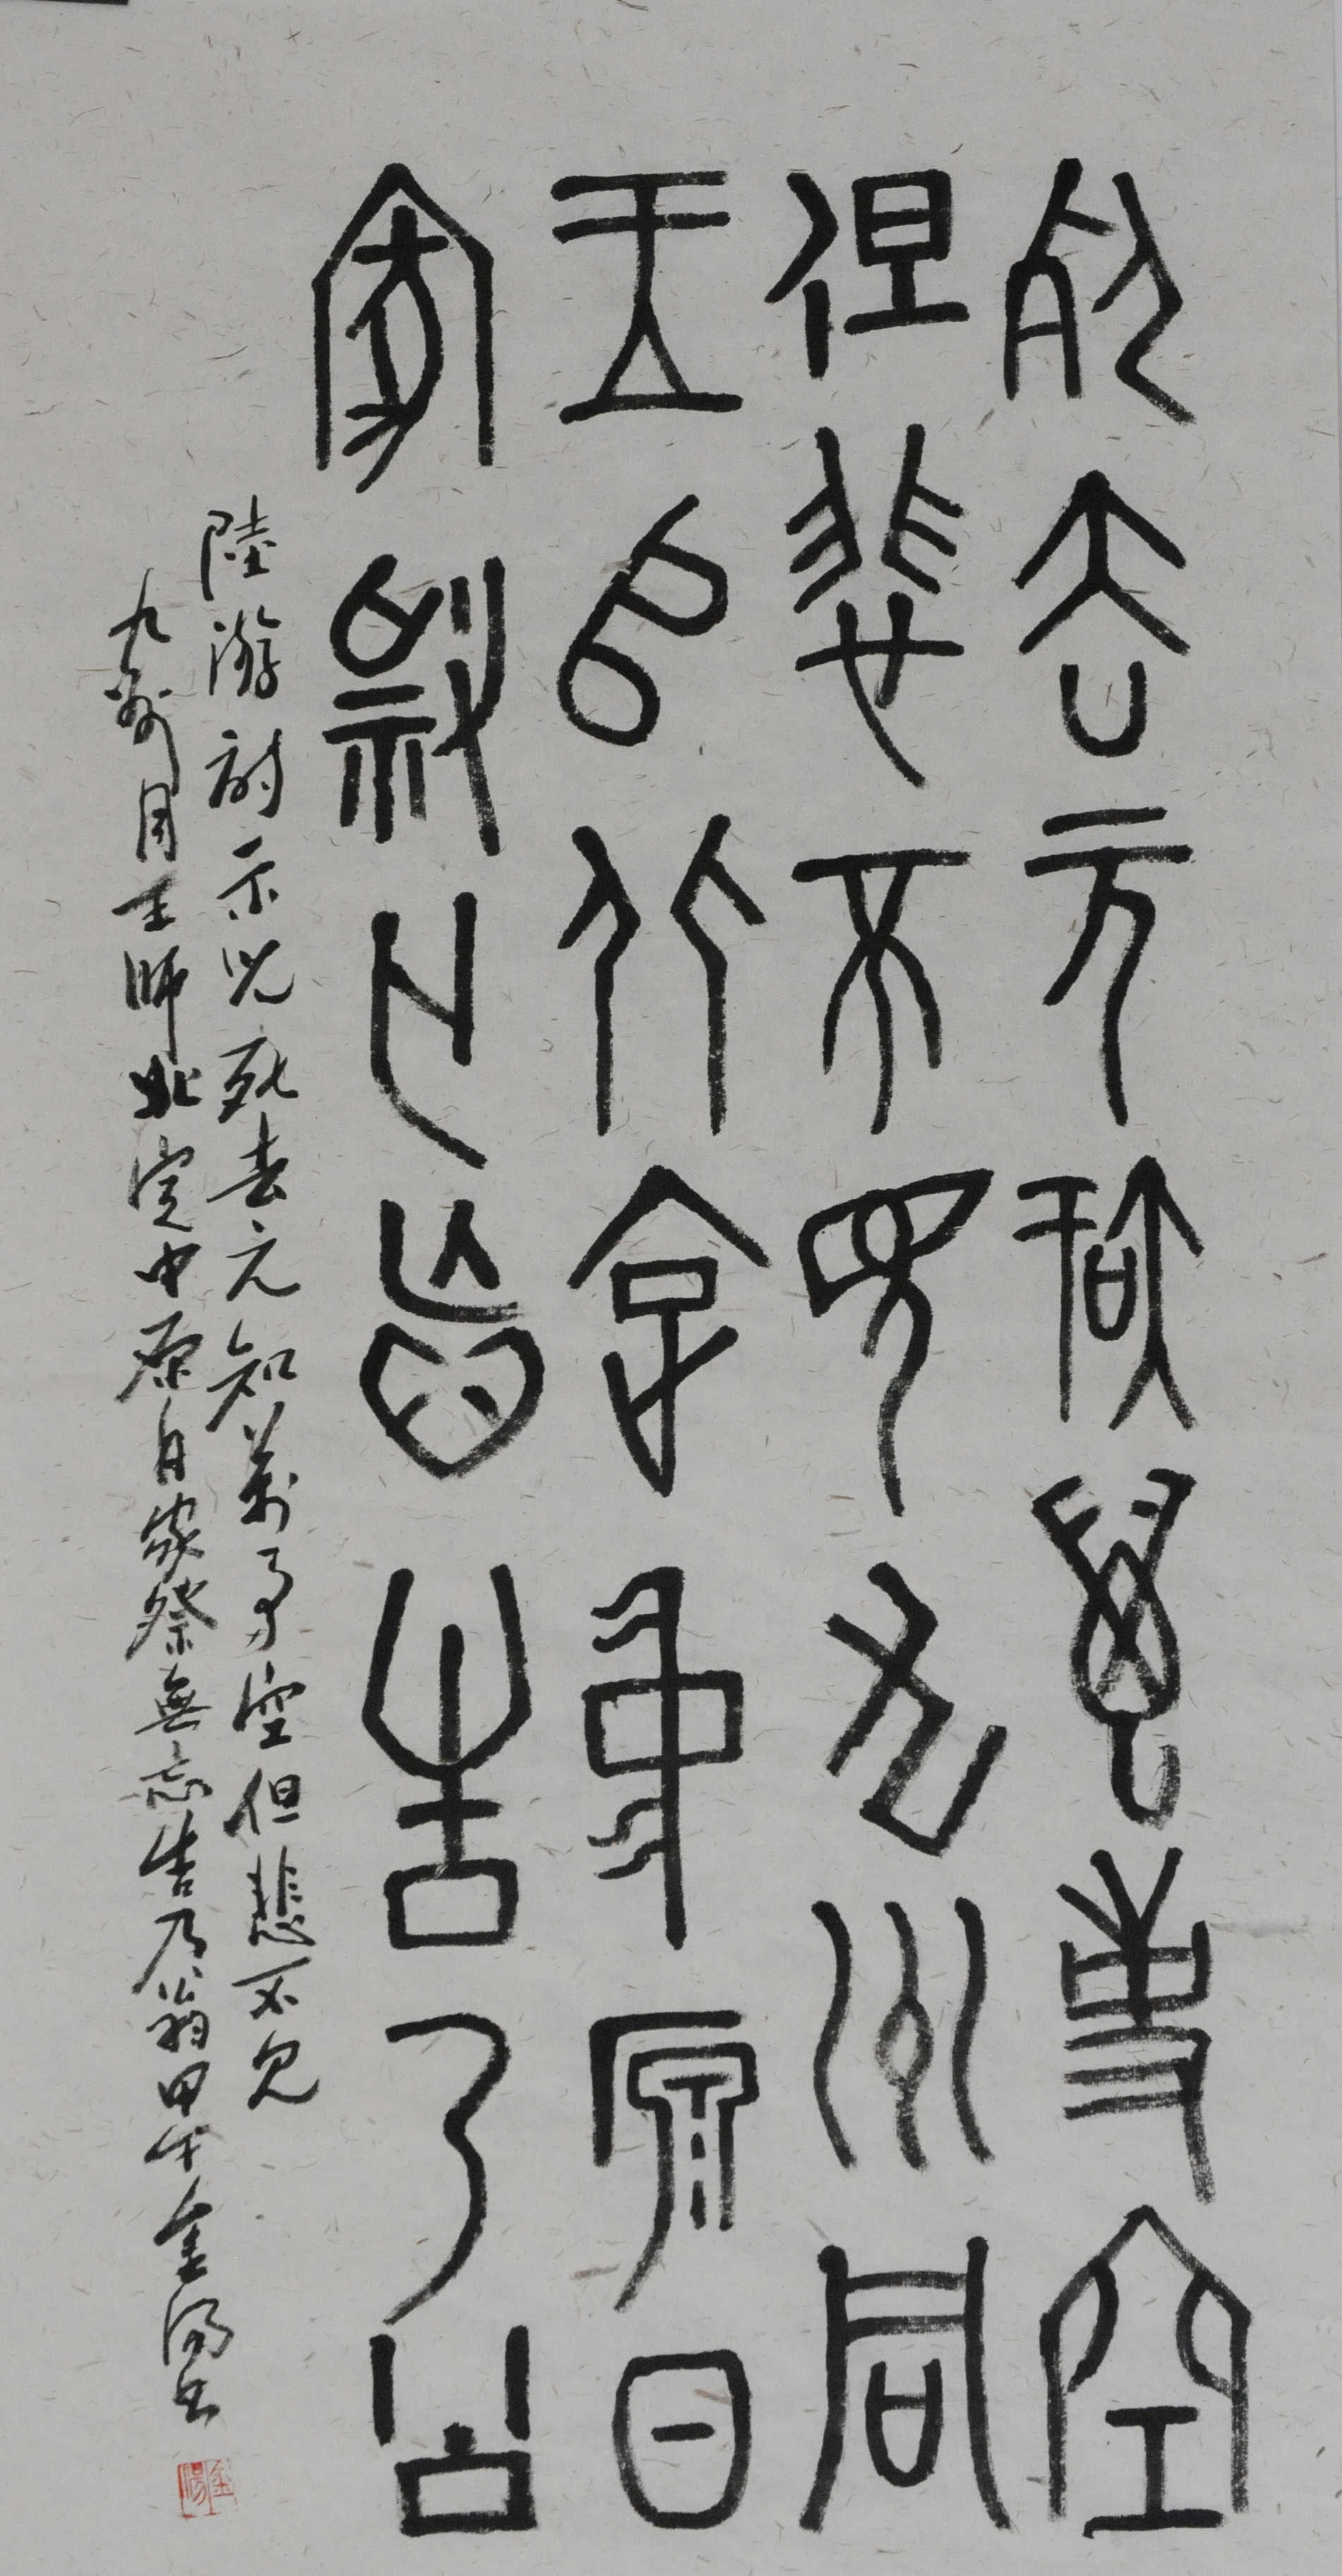 死去元知萬事空
但悲不見九州同
王師北定中原日
家祭無忘告乃翁
陸游詩示兒死去元知萬事空但悲不見
九州同王師北定中原日家祭無忘告乃翁甲午金湯書